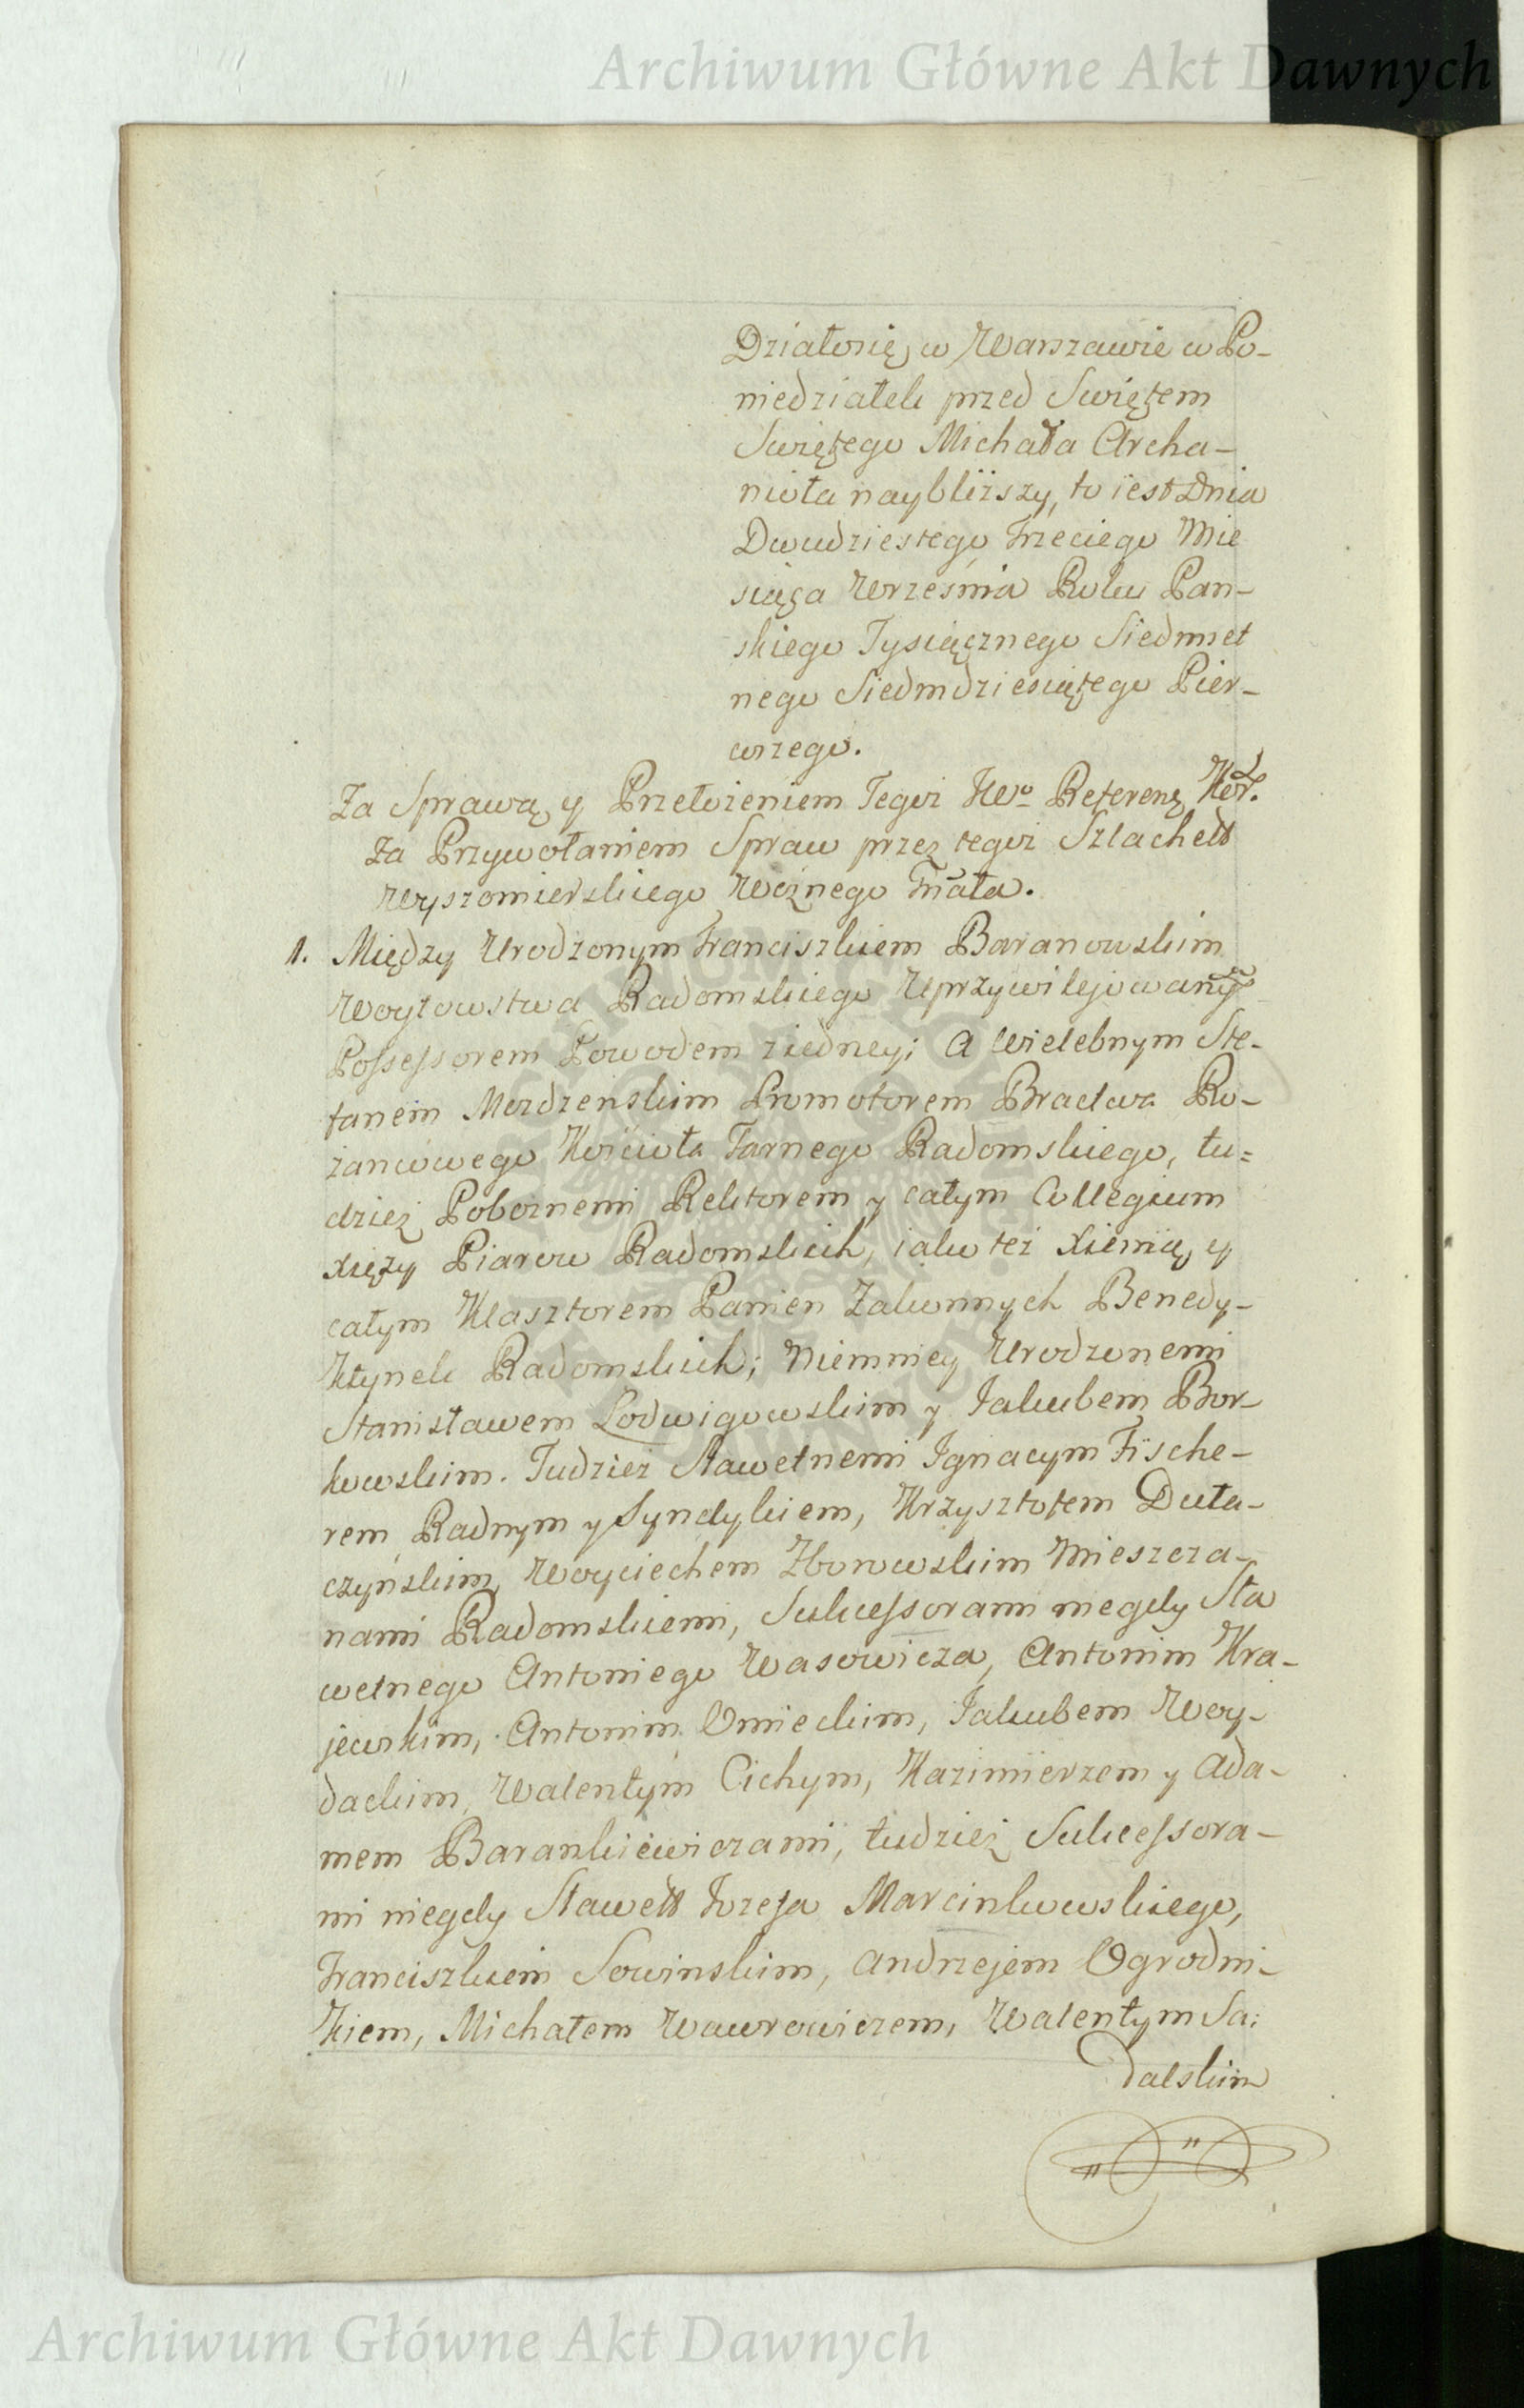 Archiwum Główne Akt Dawnych
Działosię w Warszawie w Po-
niedziałek przed Swiętem
Swiętego Michała Archa-
nioła naybliższy, to iest Dnia
Dwudziestego Trzeciego Mie
siąca Września Roku Pan-
skiego Tysiącznego Siedmset
nego Siedmdziesiątego Pier-
wszego.
Za Sprawą y Przełożeniem Tegoż JWo Referenꝫ Kor.
Za Przywołaniem Spraw przez tegoż Szlachett
Wyszomierskiego Woźnego Tnała.
1. Między Urodzonym Franciszkiem Baranowskim
Woytowstwa Radomskiego Uprzywilejowanym
Possessorem Powodem ziedney; a Wielebnym Ste-
fanem Mordzeńskim Promotorem Bractwa Ro-
żancowego Kościoła Farnego Radomskiego, tu=
dzież Pobożnemi Rektorem y całym Collegium
Xięży Piarow Radomskich, iako też Xienią y
całym Klasztorem Panien Zakonnych Benedy-
ktynek Radomskich; niemniey Urodzonemi
Stanisławem Lodwigowskim y Jakubem Bor-
kowskim. Tudzież Sławetnemi Ignacym Fische-
rem Radnym y Syndykiem, Krzysztofem Duta-
czyńskim, Woyciechem Zborowskim Mieszcza-
nami Radomskiemi, Sukcessorami niegdy Sła
wetnego Antoniego Wasowicza, Antonim Kra-
jewskim, Antonim Omieckim, Jakubem Woy-
dackim, Walentym Cichym, Kazimierzem y Ada-
mem Barankiewiczami, tudzież Sukcessora-
mi niegdy Sławett Jozefa Marcinkowskiego,
Franciszkiem Sowinskim, Andrzejem Ogrodni-
kiem, Michałem Wawrowiczem, Walentym Sa:
dalskim
Archiwum Główne Akt Dawnych